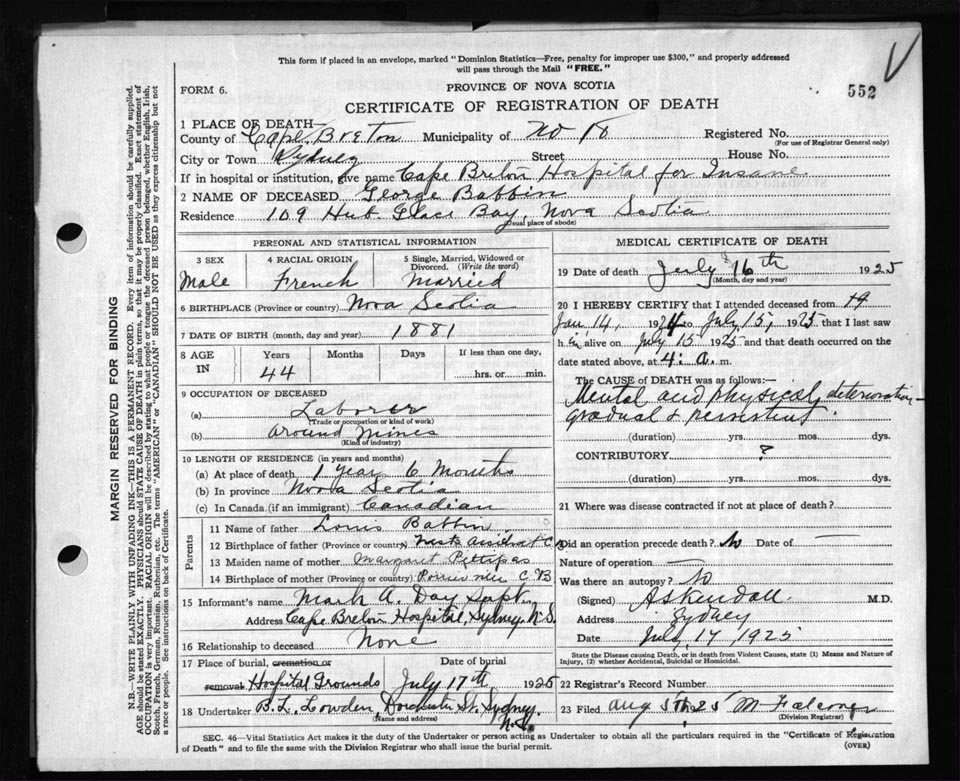 This form if placed in an envelope, marked "Dominion Statistics—Free, penalty for improper use $300," and properly addressed
will pass through the Mail "FREE."
FORM 6.
PROVINCE OF NOVA SCOTIA
552
CERTIFICATE OF REGISTRATION OF DEATH
1 PLACE OF DEATH—
County of Cape Breton Municipality of No Registered No.
(For use of Registrar General only)
City or Town Sydney Street House No.
If in hospital or institution, give name Cape Breton Hospital for Insane
2 NAME OF DECEASED George Babbin
Residence 109 Hub. Glace Bay, Nova Scotia
(Usual place of abode)
PERSONAL AND STATISTICAL INFORMATION
3 SEX 4 RACIAL ORIGIN 5 Single, Married, Widowed or
Divorced. (Write the word)
Male French Married
6 BIRTHPLACE (Province or country) Nova Scotia
7 DATE OF BIRTH (month, day and year) 1881
8 AGE IN Years Months Days If less than one day,
44 hrs. or min.
9 OCCUPATION OF DECEASED
(a) Laborer
(Trade or occupation or kind of work)
(b) Around Mines
(Kind of industry)
10 LENGTH OF RESIDENCE (in years and months)
(a) At place of death 1 year 6 Months
(b) In province Nova Scotia
(c) In Canada (if an immigrant) Canadian
Parents
11 Name of father Louis Babbin
12 Birthplace of father (Province or country) West Arichat C B
13 Maiden name of mother Margaret Pettipas
14 Birthplace of mother (Province or country) C B
15 Informant's name Mark A. Day Supt.
Address Cape Breton Hospital, Sydney. N.S.
16 Relationship to deceased None
17 Place of burial, cremation or Date of burial
removal Hospital Grounds July 17th 1925
18 Undertaker B. L. Lowden, Dorchester St. Sydney.
N.S.
(Name and address)
MEDICAL CERTIFICATE OF DEATH
19 Date of death July 16th 1925
(Month, day and year)
20 I HEREBY CERTIFY that I attended deceased from 19
Jan 14, 1924 to July 15, 1925 that I last saw
h im alive on July 15 1925 and that death occurred on the
date stated above, at 4: a. m.
The CAUSE OF DEATH was as follows:—
Mental and physical deterioration—
gradual & persistent.
(duration) yrs. mos. dys.
CONTRIBUTORY ?
(duration) yrs. mos. dys.
21 Where was disease contracted if not at place of death?
Did an operation precede death? No Date of —
Nature of operation —
Was there an autopsy? No
(Signed) A S Kendall M.D.
Address Sydney
Date July 17 1925
State the Disease causing Death, or in death from Violent Causes, state (1) Means and Nature of
Injury, (2) whether Accidental, Suicidal or Homicidal.
22 Registrar's Record Number
23 Filed Aug 5th 25 M Falconer
(Division Registrar)
SEC. 46—Vital Statistics Act makes it the duty of the Undertaker or person acting as Undertaker to obtain all the particulars required in the "Certificate of Registration
of Death" and to file the same with the Division Registrar who shall issue the burial permit.
(OVER)
MARGIN RESERVED FOR BINDING
N.B.—WRITE PLAINLY WITH UNFADING INK—THIS IS A PERMANENT RECORD. Every item of information should be carefully supplied.
AGE should be stated EXACTLY. PHYSICIANS should STATE CAUSE OF DEATH in plain terms, so that it may be properly classified. Exact statement of
OCCUPATION is very important. RACIAL ORIGIN will be described by stating to what people or tongue the deceased person belonged, whether English, Irish,
Scotch, French, German, Russian, Ruthenian, etc. The terms "AMERICAN" or "CANADIAN" SHOULD NOT BE USED as they express citizenship but not
a race or people. See instructions on back of Certificate.